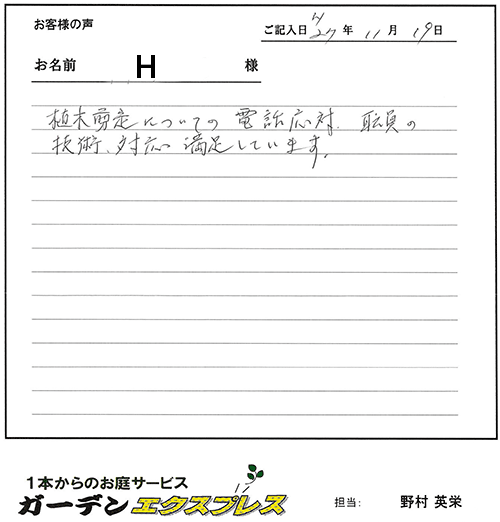 お客様の声
ご記入日 H27年 11月 19日
お名前 H 様
植木剪定についての 電話応対、職員の
技術、対応 満足しています。
1本からのお庭サービス
ガーデンエクスプレス 担当: 野村 英栄